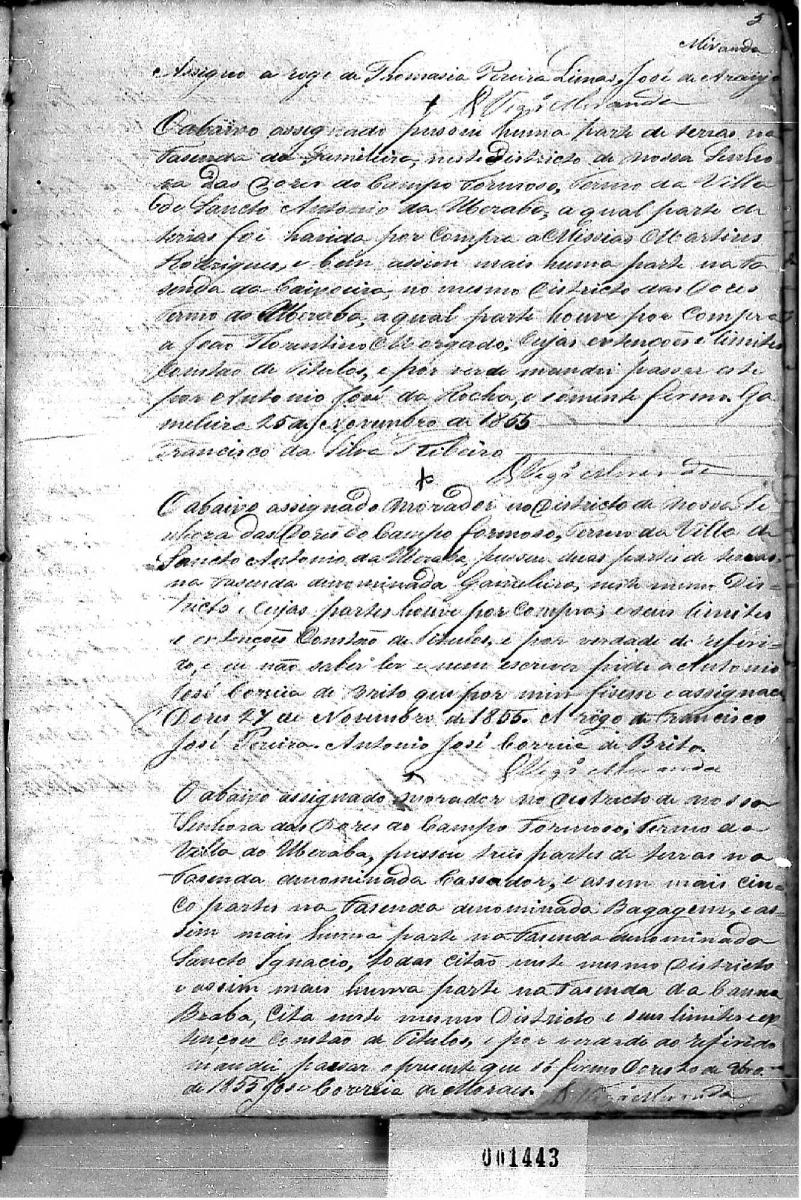 3
Miranda
Assigno a rogo de Thomasia Pereira Lima, José de Araujo
O Vigº Miranda
O abaixo assignado possui huma parte de terras na
Fasenda da Gamileira, neste Districto de Nossa Senho
ra das Dores do Campo Formoso, Termo da Villa
de Sancto Antonio da Uberaba, a qual parte de
terras foi havida por compra a Missias Martins
Rodrigues, e bem assim mais huma parte na fa
senda da Caixoeira, no mesmo Districto das Dores
termo do Uberaba, a qual parte houve por compra
a João Florentino Morgado, Cujas extenções e limites
Constão de Titulos, e por verde mandei passar este
por Antonio José da Rocha, e sómente firmo Ga
meleira 25 de Novembro de 1855
Francisco da Silva Ribeiro
O Vigº Miranda
O abaixo assignado morador no Districto de Nossa Se
nhora das Dores do Campo formoso, Termo da Villa de
Sancto Antonio da Uberaba possue duas partes de terras
na Fasenda denominada, neste mesmo Dis-
tricto e Cujas partes houve por Compra, e seus limites
e extenções Constão de Titulos, e por verdade do referi-
do, e eu não saber ler e nem escrever pidi a Antonio
José Correia de Brito que por mim fisesse e assignace
Dores 27 de Novembro de 1855. A rogo de Francisco
José Pereira. Antonio José Correia de Brito.
O Vigº Miranda
O abaixo assignado morador no Districto de Nossa
Senhora das Dores do Campo Formoso, Termo da
Villa do Uberaba, possui tres partes de terras na
Fasenda denominada Cassador, e assim mais cin-
co partes na Fasenda denominada Bagagem, e as-
sim mais huma parte na Fasenda denominada
Sancto Ignacio, todas citão neste mesmo Districto
e assim mais huma parte na Fasenda da Canna
Braba, Cita neste mesmo Districto e seus limites e ex
tençoens Constão de Titulos, e por verdade do referido
mandei passar o presente que só firmo Dores de
de 1855 José Correia de Moraes.
O Vigº Miranda
001443